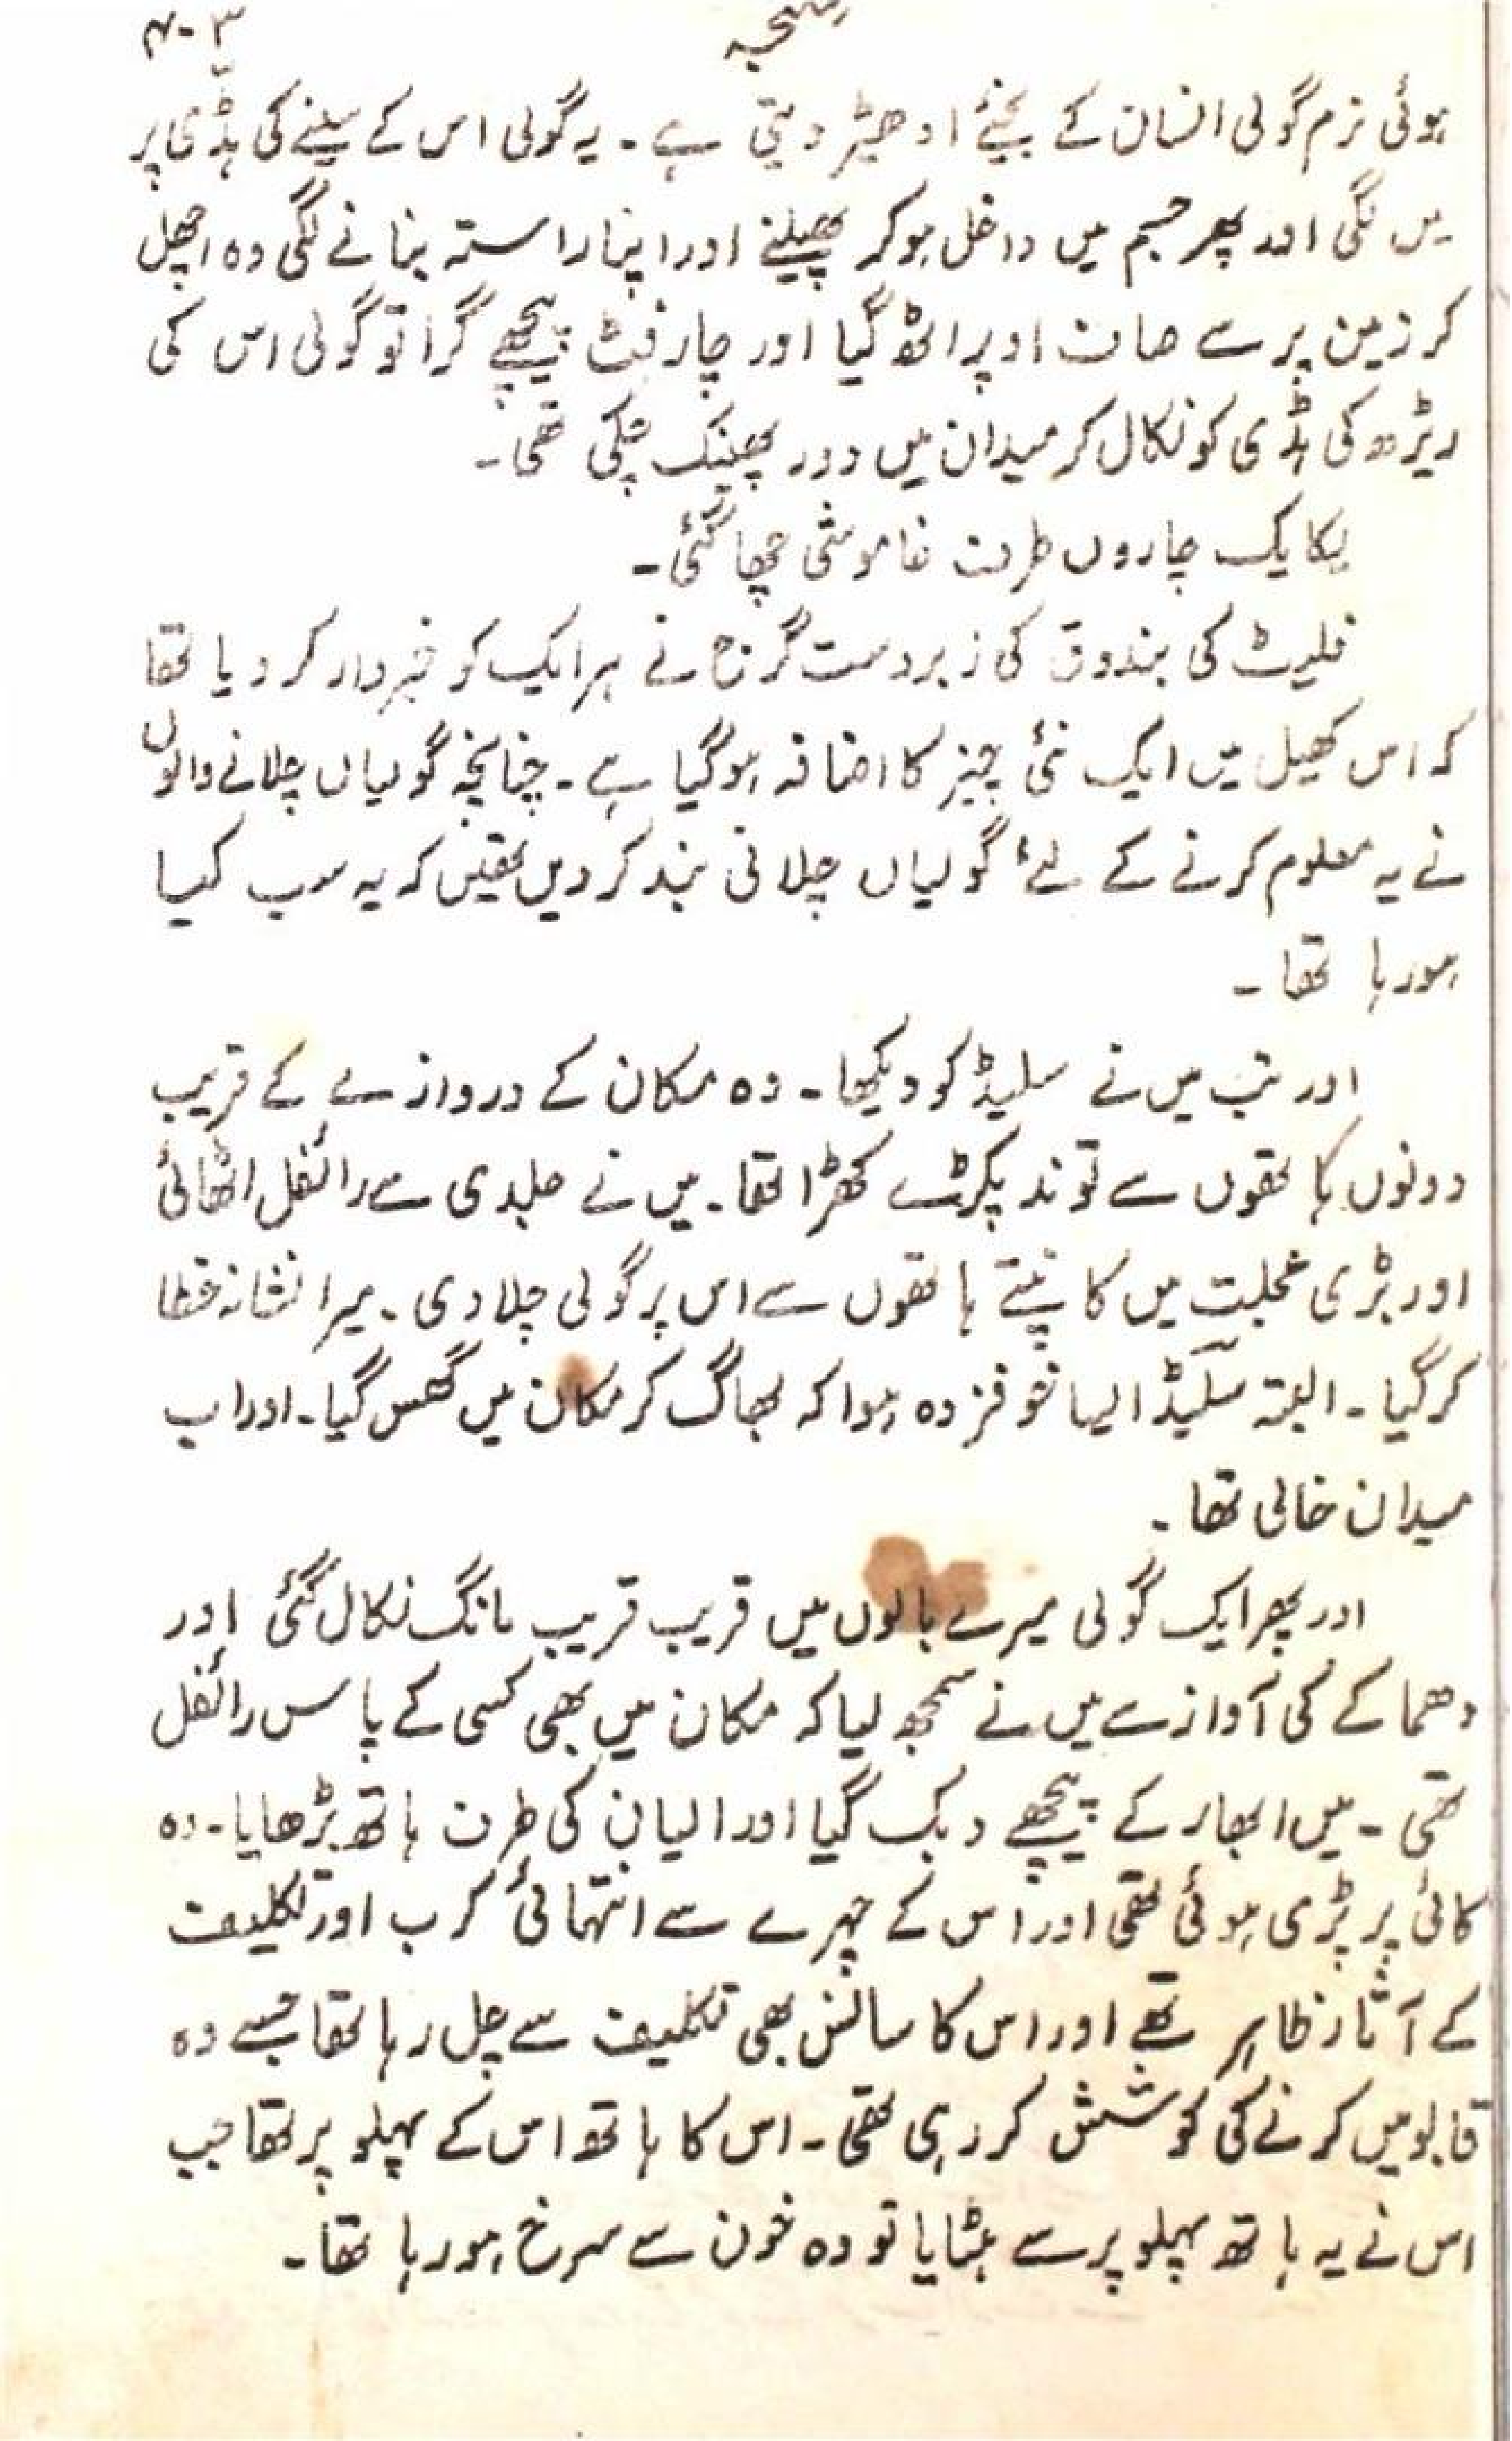 ۴۰۳
ہوئی نرم گولی انسان کے بخئے ادھیڑ دیتی ہے۔ یہ گولی اس کے سینے کی ہڈی پر
میں لگی اور پھر جسم میں داخل ہوکر پھیلنے اور اپنا راستہ بنانے لگی وہ اچھل
کر زمین پر سے صاف اوپر اٹھ گیا اور چار فٹ پیچھے گرا تو گولی اس کی
ریڑھ کی ہڈی کو نکال کر میدان میں دور پھینک چکی تھی۔
یکایک چاروں طرف خاموشی چھا گئی۔
فلیٹ کی بندوق کی زبردست گرج نے ہر ایک کو خبردار کر دیا تھا
کہ اس کھیل میں ایک نئی چیز کا اضافہ ہوگیا ہے۔ چنانچہ گولیاں چلانے والوں
نے یہ معلوم کرنے کے لئے گولیاں چلانی بند کر دیں تھیں کہ یہ سب کیا
ہو رہا تھا۔
اور تب میں نے سلیڈ کو دیکھا۔ وہ مکان کے دروازے کے قریب
دونوں ہاتھوں سے توند پکڑے کھڑا تھا۔ میں نے جلدی سے رائفل اٹھائی
اور بڑی عجلت میں کانپتے ہاتھوں سے اس پر گولی چلا دی۔ میرا نشانہ خطا
کر گیا۔ البتہ سلیڈ ایسا خوفزدہ ہوا کہ بھاگ کر مکان میں گھس گیا۔ اور اب
میدان خالی تھا۔
اور پھر ایک گولی میرے بالوں میں قریب قریب مانگ نکال گئی اور
دھماکے کی آواز سے میں نے سمجھ لیا کہ مکان میں بھی کسی کے پاس رائفل
تھی۔ میں ابھار کے پیچھے دبک گیا اور الیان کی طرف ہاتھ بڑھایا۔ وہ
کائی پر پڑی ہوئی تھی اور اس کے چہرے سے انتہائی کرب اور تکلیف
کے آثار ظاہر تھے اور اس کا سانس بھی تکلیف سے چل رہا تھا جسے وہ
قابو میں کرنے کی کوشش کر رہی تھی۔ اس کا ہاتھ اس کے پہلو پر تھا جب
اس نے یہ ہاتھ پہلو پر سے ہٹایا تو وہ خون سے سرخ ہو رہا تھا۔